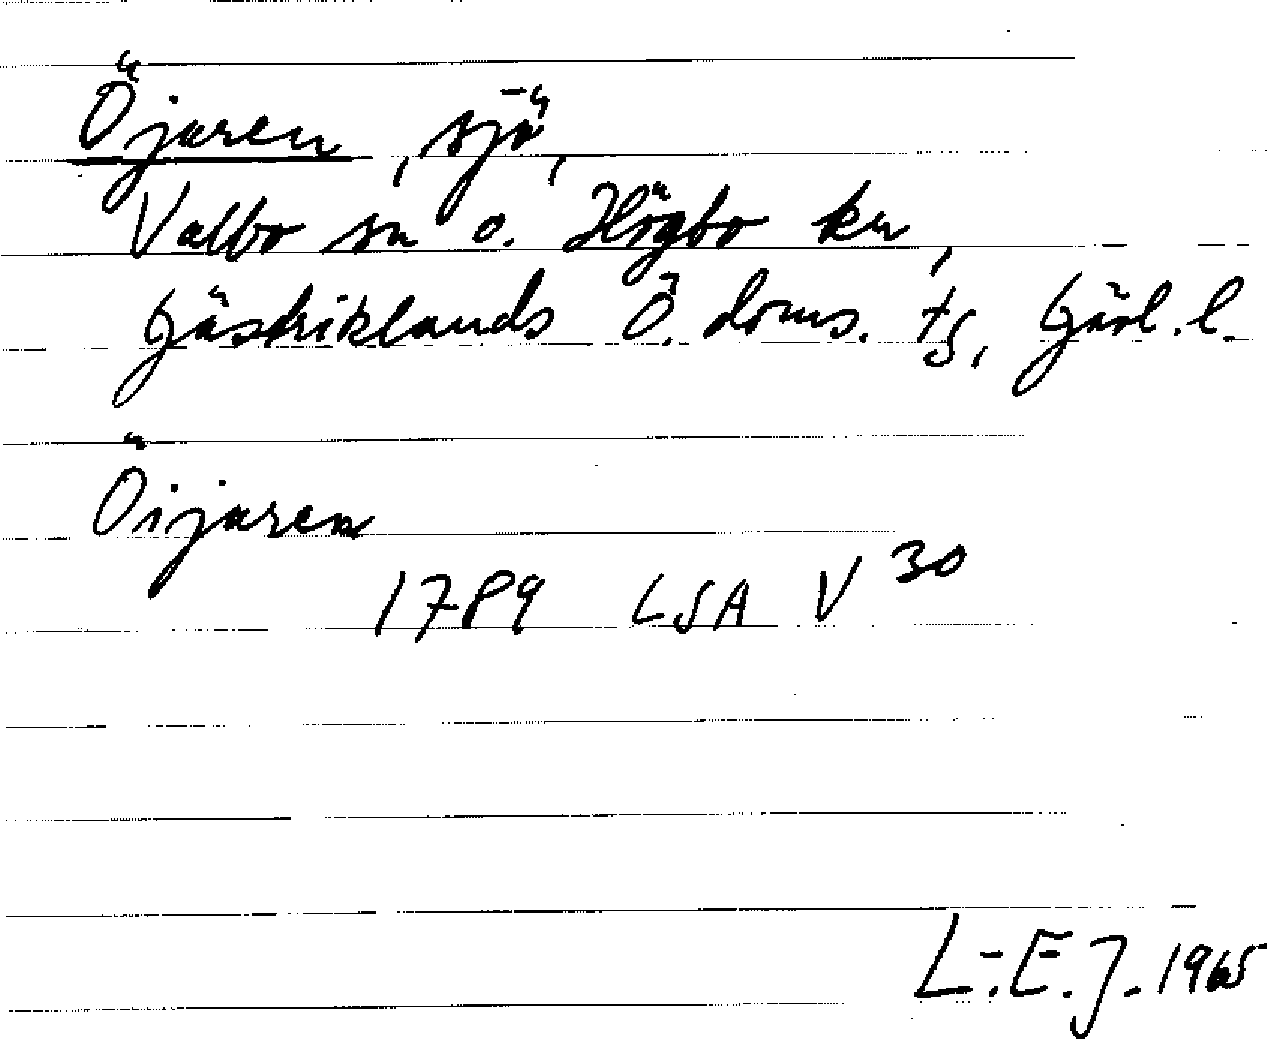 Öjaren, sjö,
Valbo sn o. Högbo kn,
Gästriklands Ö. doms. tg, Gävl. l.
Öijaren
1789 LSA V 30
L-E.J. 1965